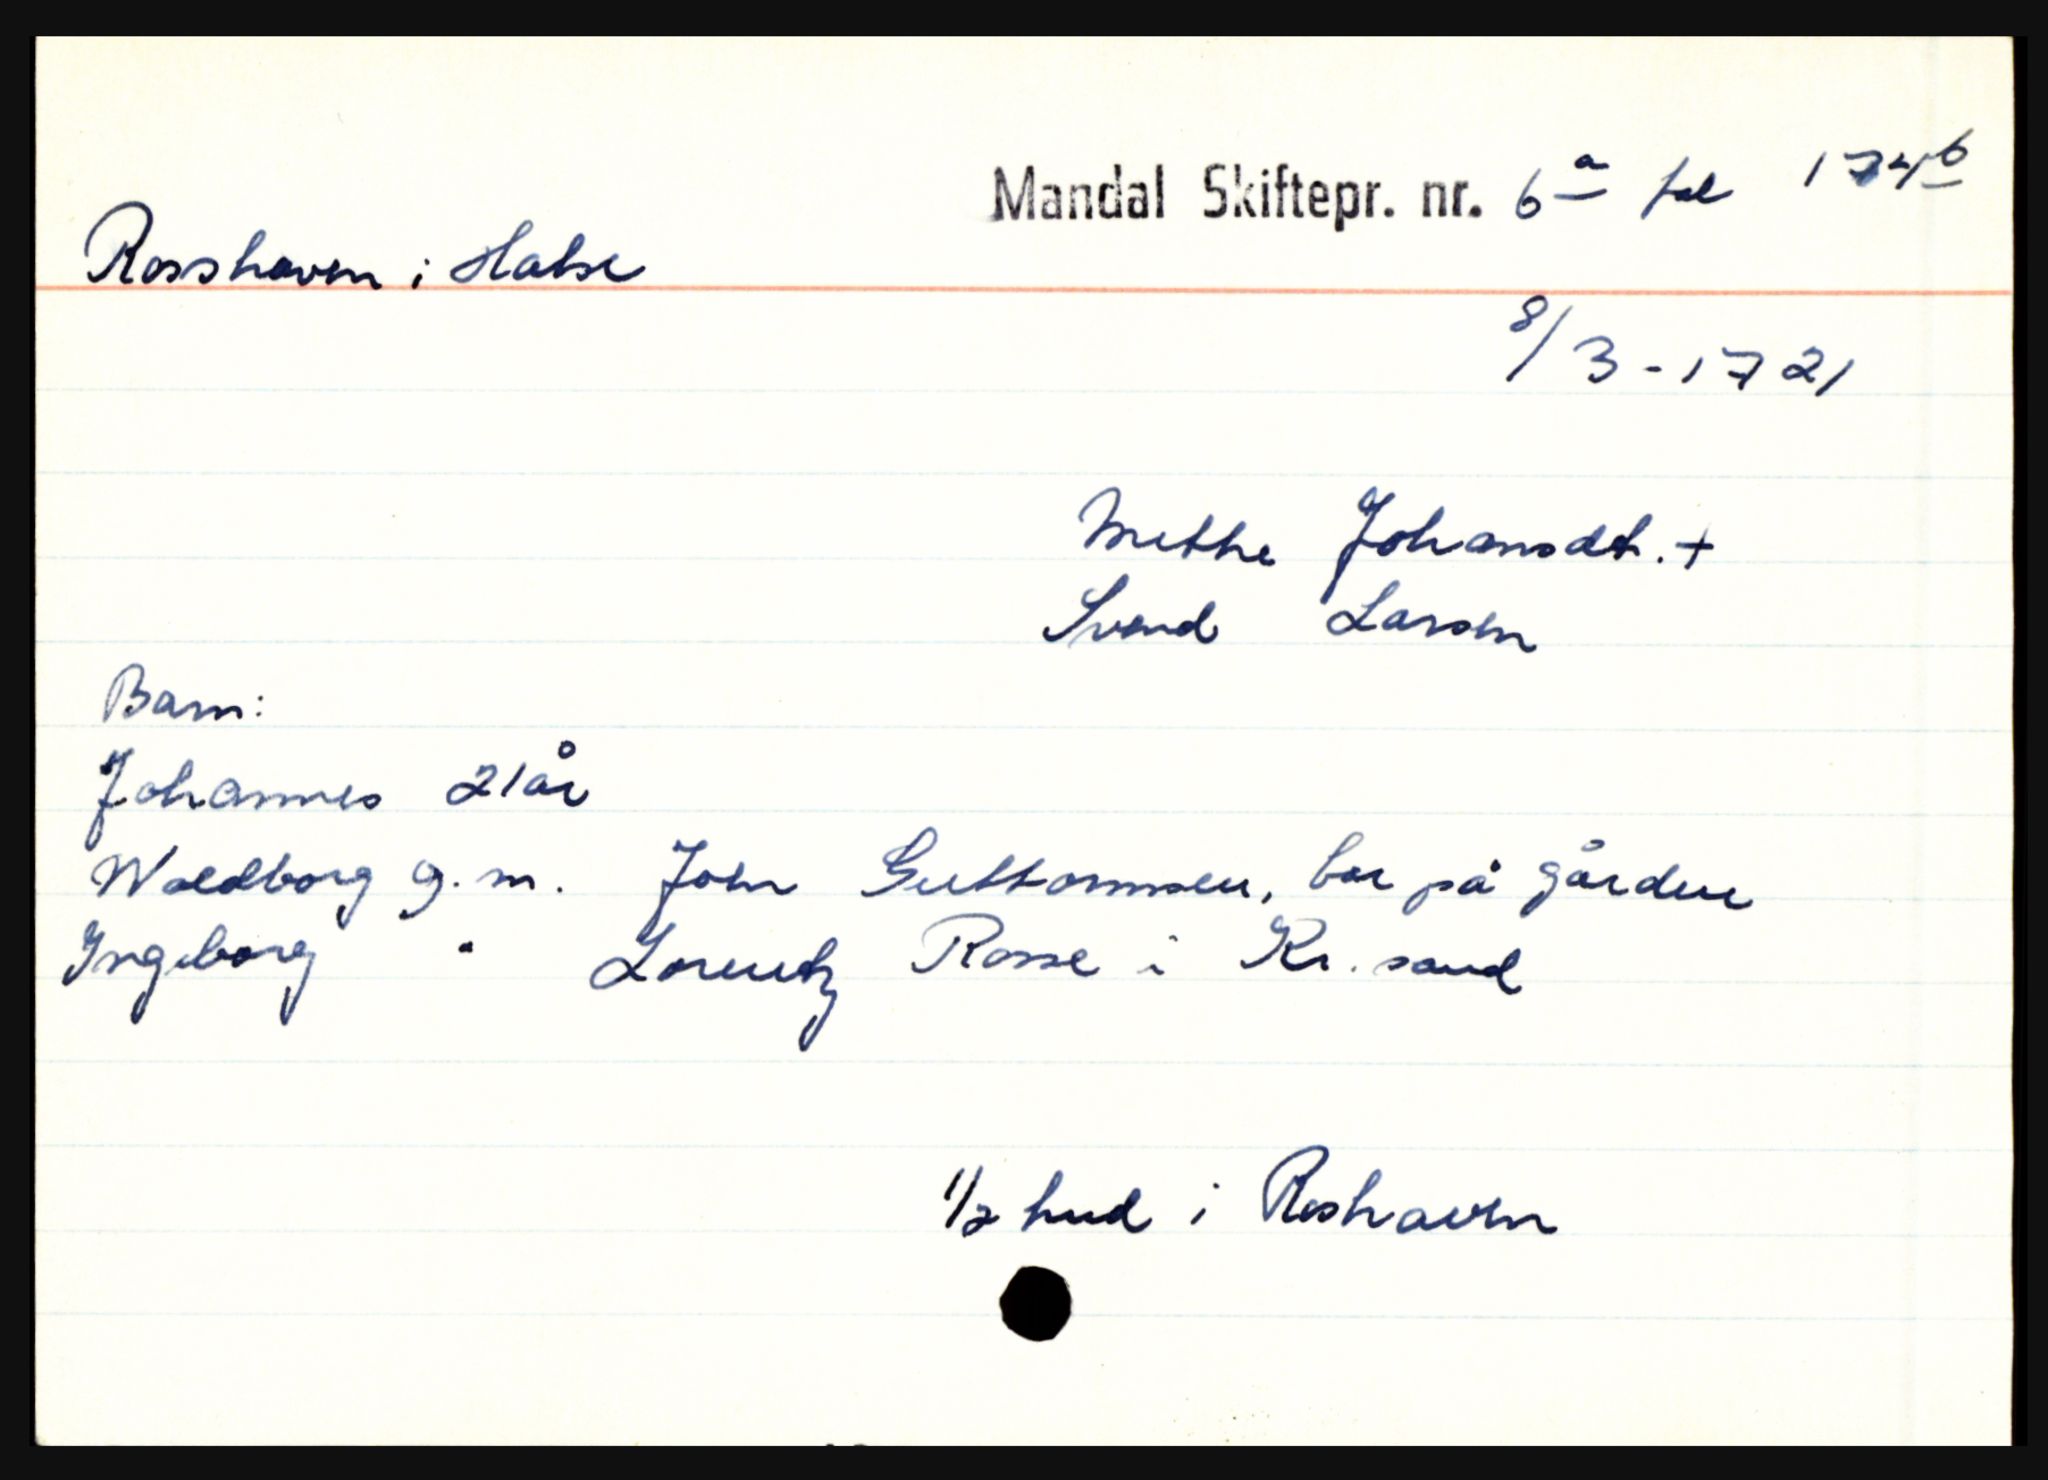 Mandal Skiftepr. nr. 6a fol 174b
Rosshaven i Halse
8/3-1721
Methe Johansdt. +
Svend Larsen
Barn:
Johannes 21 år
Woldborg g. m. John Guttormsen, bor på gården
Ingeborg " Lorentz Rosse i Kr. sand
1/2 hud i Roshaven